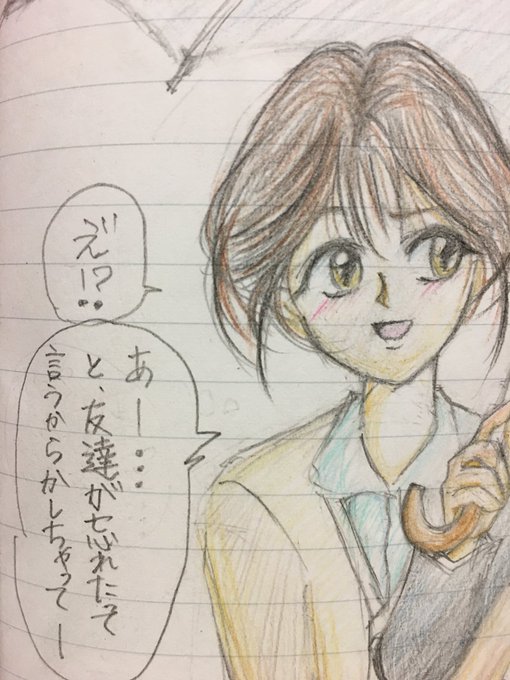 え゛!?
あー…
と、友達が忘れたって
言うからかしちゃってー